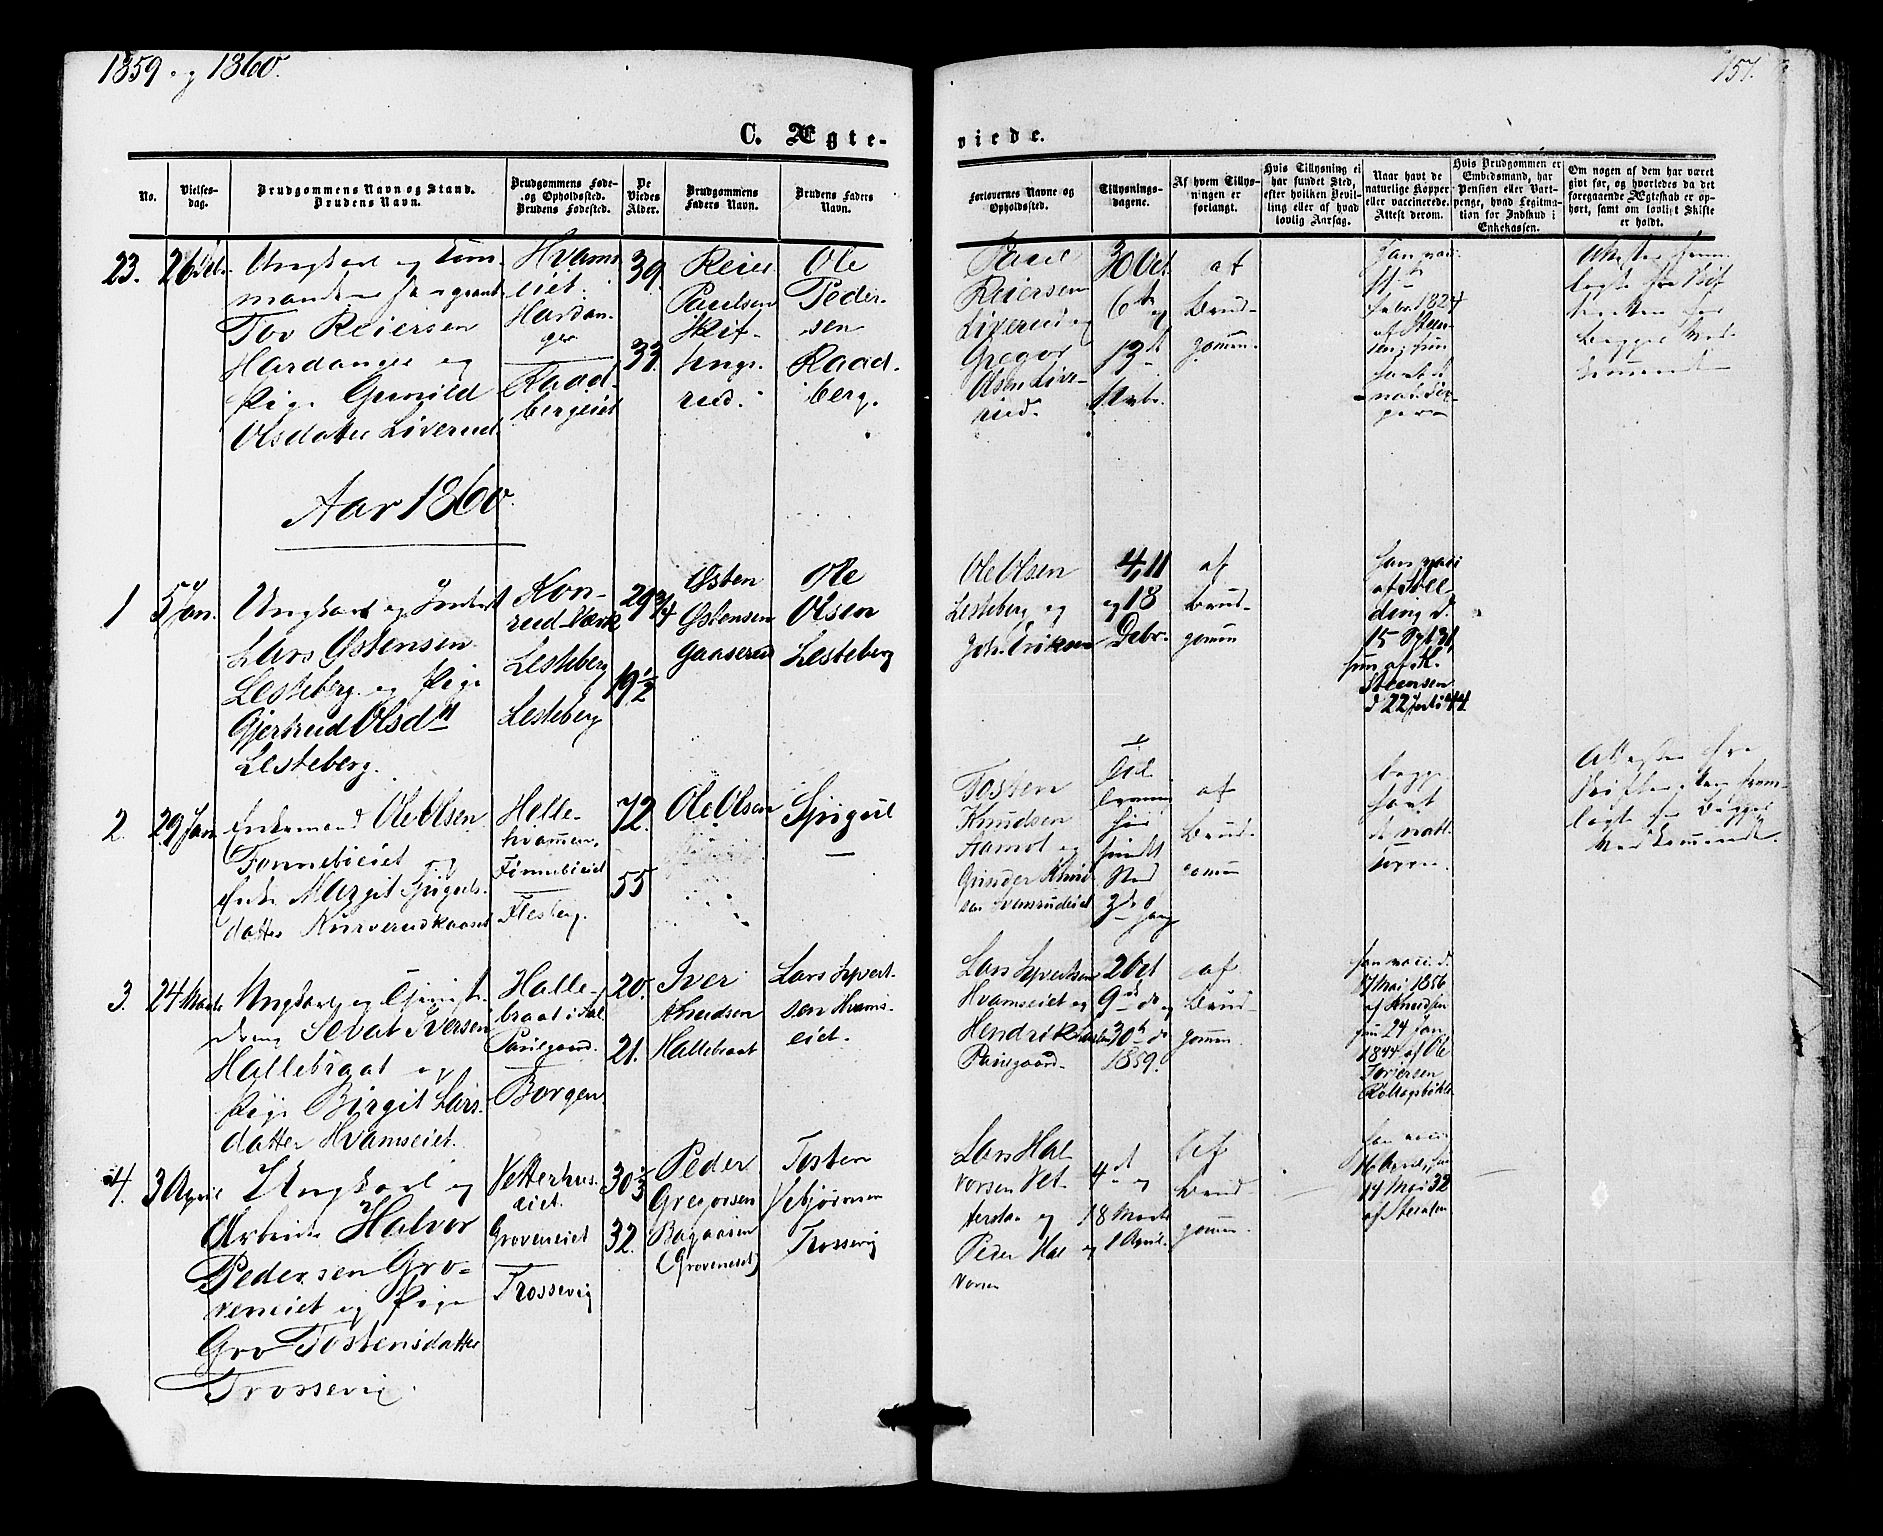 1859 og 1860.
157.
C. Ægte-
viede.
No.
Vielses-
dag.
Brudgommens Navn og Stand.
Brudens Navn.
Brudgommens Føde-
og Opholdssted.
Brudens Fødested.
De
Viedes
Alder.
Brudgommens
Faders Navn.
Brudens Faders
Navn.
Forlovernes Navne og
Opholdssted.
Tillysnings-
dagene.
Af hvem Tillys-
ningen er
forlangt.
Hvis Tillysning ei
har fundet Sted,
efter hvilken Bevil-
ling eller af hvad
lovlig Aarsag.
Naar havt de
naturlige Kopper
eller vaccinerede.
Attest derom.
Hvis Brudgommen er
Embidsmand, har
Pension eller Vart-
penge, hvad Legitima-
tion for Indskud i
Enkekassen.
Om nogen af dem har været
givt før, og hvorledes da det
foregaaende Ægteskab er op-
hørt, samt om lovligt Skifte
er holdt.
23.
Ungkarl og
Tov Reiersen
Hardanger og
Pige Gunild
Olsdatter Liverud.
Hvams
eiet.
Hardan-
ger
Raad-
bergeiet
39.
33.
Reier
Paulsen
Ole
Peder-
sen
Raad-
berg.
Paul
Reiersen
Liverud og
Gregor
Olsen Live-
rud.
30 Oct
6te og
13de
Novbr.
af
Brud-
gommen.
Aar 1860.
1
5 Jan.
Ungkarl og
Lars Østensen
Lesteberg og Pige
Gjertrud Olsdtt
Lesteberg.
Kon-
rud-Værk
Lesteberg
Lesteberg
29 3/4
19 1/2
Østen
Østensen
Gaaserud
Ole
Olsen
Lesteberg
Ole Olsen
Lesteberg og
Joh. Eriksen
4, 11
og 18
Debr.
af
Brud-
gommen
han vacc
15 Spt 31,
hun af K.
Steensen
d 22 Juli 44
2.
29 Jan
Enkemand Ole Olsen
Tonnebieiet og
Enke Margit Spiguls-
datter Kurverudkaaset
Helle-
hvammen.
Flesberg.
72.
55
Ole Olsen
Spigul
—
Tosten
Knudsen
Aamot og
Gunder Knud-
sen
af
Brud-
gommen
begge
havt
de natl.
3.
24 Marts
Ungkarl og
dreng Sevat Iversen
Hallebraat og
Pige Birgit Lars-
datter Hvamseiet.
Halle-
braat i Aal
Pariigaard.
Borgen
20.
21.
Iver
Knudsen
Hallebraat
Lars Syvert-
sen Hvams-
eiet.
Lars Syvertsen
Hvamseiet og
Hendrik
2 Oct
9de do og
30te do
1859.
af
Brud-
gommen.
han vacc. d.
17 Mai 1856
af Knudsen
hun 24 Jan
1844 af Ole
Torjersen
4.
3 April
Ungkarl og
Arbeider Halvor
Pedersen Gro-
veneiet og Pige
Gro Tostensdatter
Trossevig.
Vetterhus-
eiet.
Groveneiet
Trossevig
30 2/3
32.
Peder
Gregorsen
(Groveneiet)
Tosten
Vebjørnsen
Trossevig
Lars Hal-
vorsen Vet-
og
Peder Hal-
vorsen
4de og
18 Marts
og 1 April.
Af
Brud-
gommen.
han vacc
16 April, hun
14 Mai 32
af Steensen